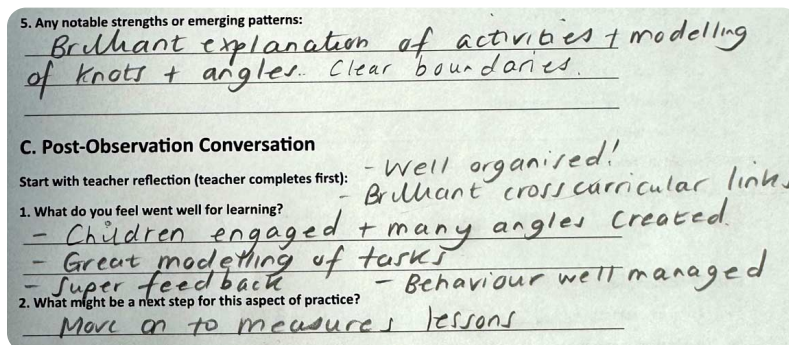 5. Any notable strengths or emerging patterns:
Brilliant explanation of activities + modelling
of knots + angles. Clear boundaries.
C. Post-Observation Conversation
- Well organised!
Start with teacher reflection (teacher completes first):
- Brilliant cross curricular link
1. What do you feel went well for learning?
- Children engaged + many angles created.
- Great modelling of tasks
- Super feedback - Behaviour well managed
2. What might be a next step for this aspect of practice?
Move on to measures lessons